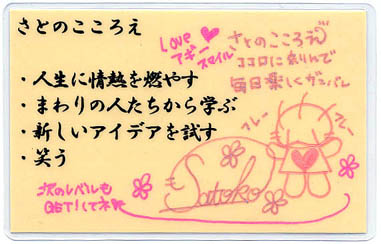 さとのこころえ
・人生に情熱を燃やす
・まわりの人たちから学ぶ
・新しいアイデアを試す
・笑う
Love
アギー
スマイル
さとのこころえ
ココロに刻んで
毎日楽しくガンバレ
フレー
フレー
Satoko
次のレベルも
GET!してネ